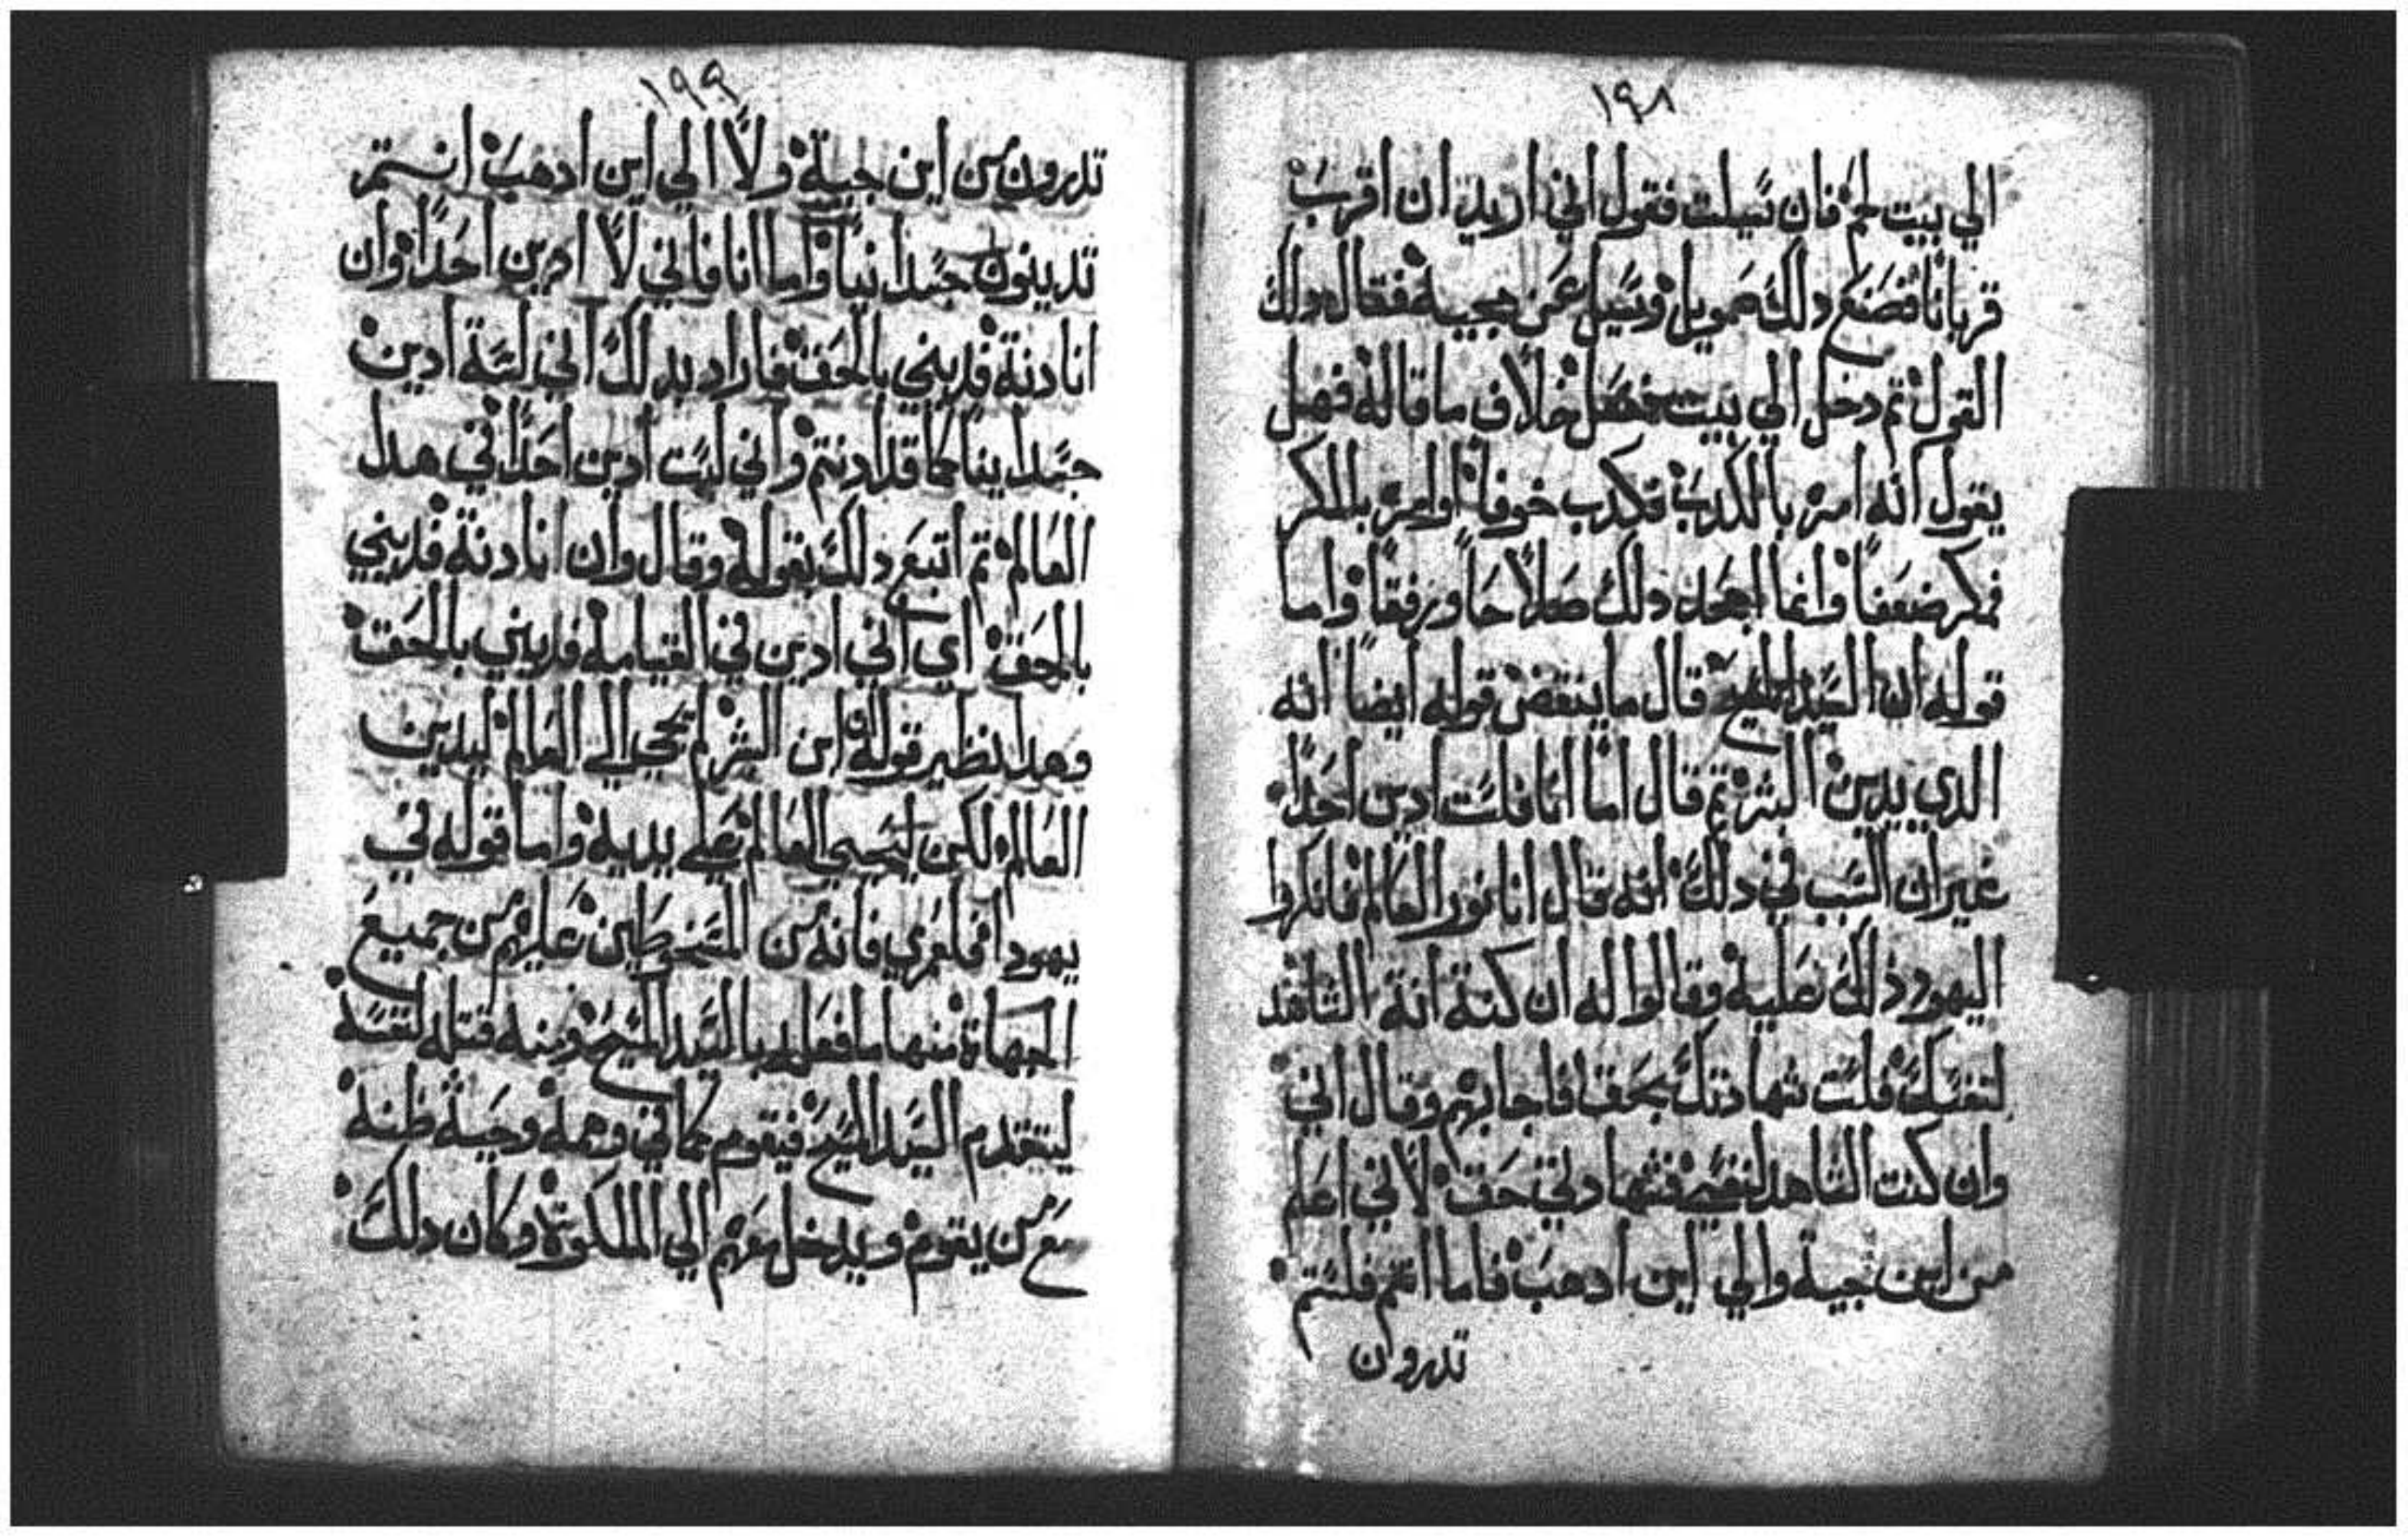 ١٩٨
الي بيت لحم فان سيلت فتقول اني اريد ان اقرب
قربانا فصنع دلك صمويل وسيل عن مجييه فقال دلك
القول تم دخل الي بيت خلاف ما قاله فهل
يقول انه امر بالكدب فكدب خوفا او امر بالمكر
فمكر ضعفا وانما دلك صلاحا ورفقا واما
قوله ان السيد المسيح قال ما ينقض قوله ايضا انه
الدي يدين البشر تم قال اما انا فلست ادين احدا
غير ان السبب في دلك انه قال انا نور العالم فانكروا
اليهود ذلك عليه وقالوا له ان كنة انة الشاهد
لنفسك فلست شهادتك بحق فاجابهم وقال اني
وان كنت الشاهد لنفسي فشهادتي حق لاني اعلم
من اين جية والي اين ادهب فاما انتم فلستم
تدرون
١٩٩
تدرون من اين جية ولا الي اين ادهب انتم
تدينون جسدانيا واما انا فاني لا ادين احدا وان
انا دنة فديني بالحق فاراد بدلك اني لسة ادين
جسدانيا كما قد ادنتم واني لست ادين احدا في هدا
العالم تم اتبع دلك بقوله وقال وان انا دنة فديني
بالحق اي اني ادين في القيامة فديني بالحق
وهدا نظير قوله ان ابن البشر لم يجي الي العالم ليدين
العالم ولكن ليحيي العالم علي يديه واما قوله في
يهودا فلعمري فانه من المسخوطين عليهم من جميع
الجهاة منها ما فعله بالسيد المسيح ومنه قتله لنفسه
ليتقدم السيد المسيح فيقوم كما في وهمه وحية ظنه
مع من يقوم ويدخل معهم الي الملكوة وكان دلك